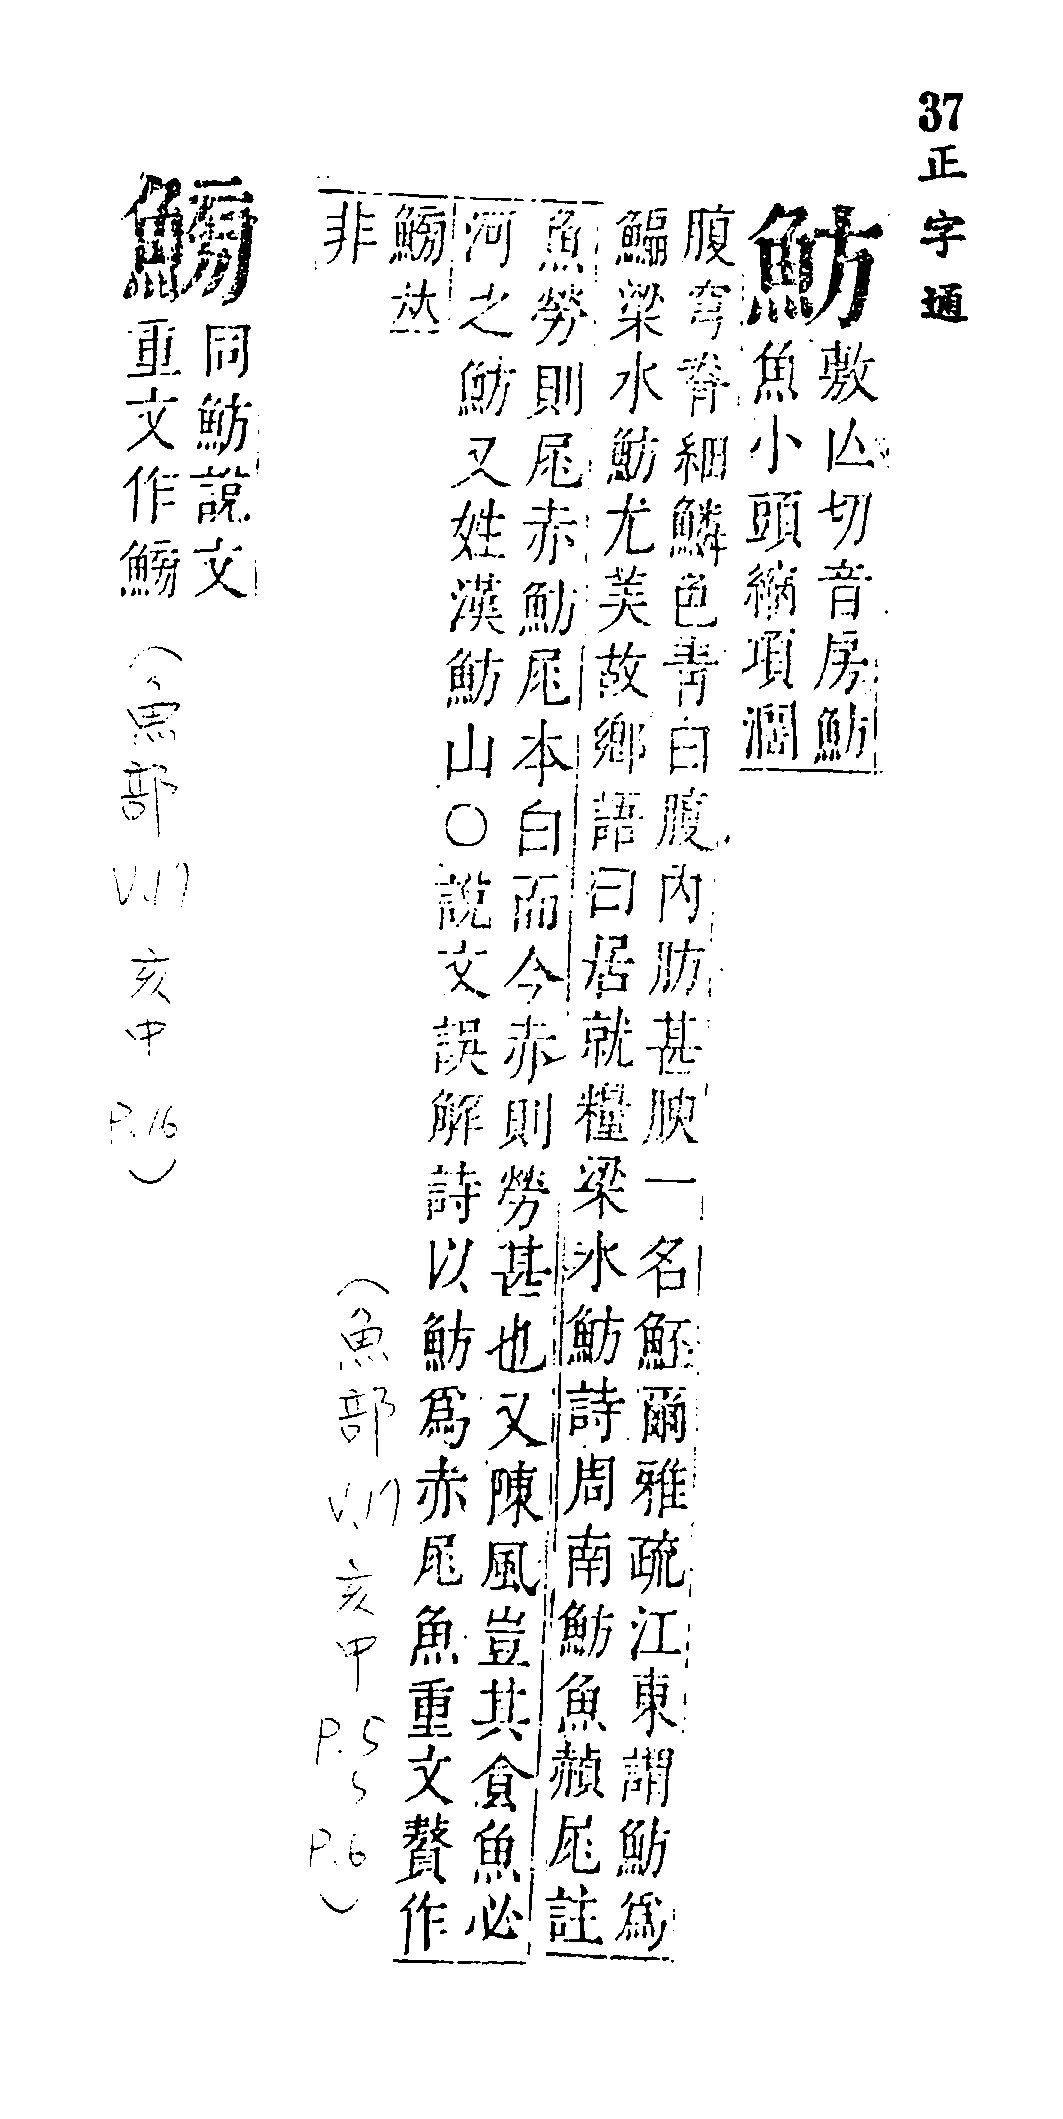 37 正字通
魴
敷亾切音房魴
魚小頭縮項濶
腹穹脊細鱗色靑白腹內肪甚腴一名魾爾雅疏江東謂魴爲
鯿梁水魴尤美故鄉語曰居就糧梁水魴詩周南魴魚赬尾註
魚勞則尾赤魴尾本白而今赤則勞甚也又陳風豈其食魚必
河之魴又姓漢魴山〇說文誤解詩以魴爲赤尾魚重文贅作
鰟𠀤
非
(魚部 V.17 亥甲 P.5~P.6)
鰟
同魴說文
重文作鰟
(魚部 V.17 亥中 P.16)